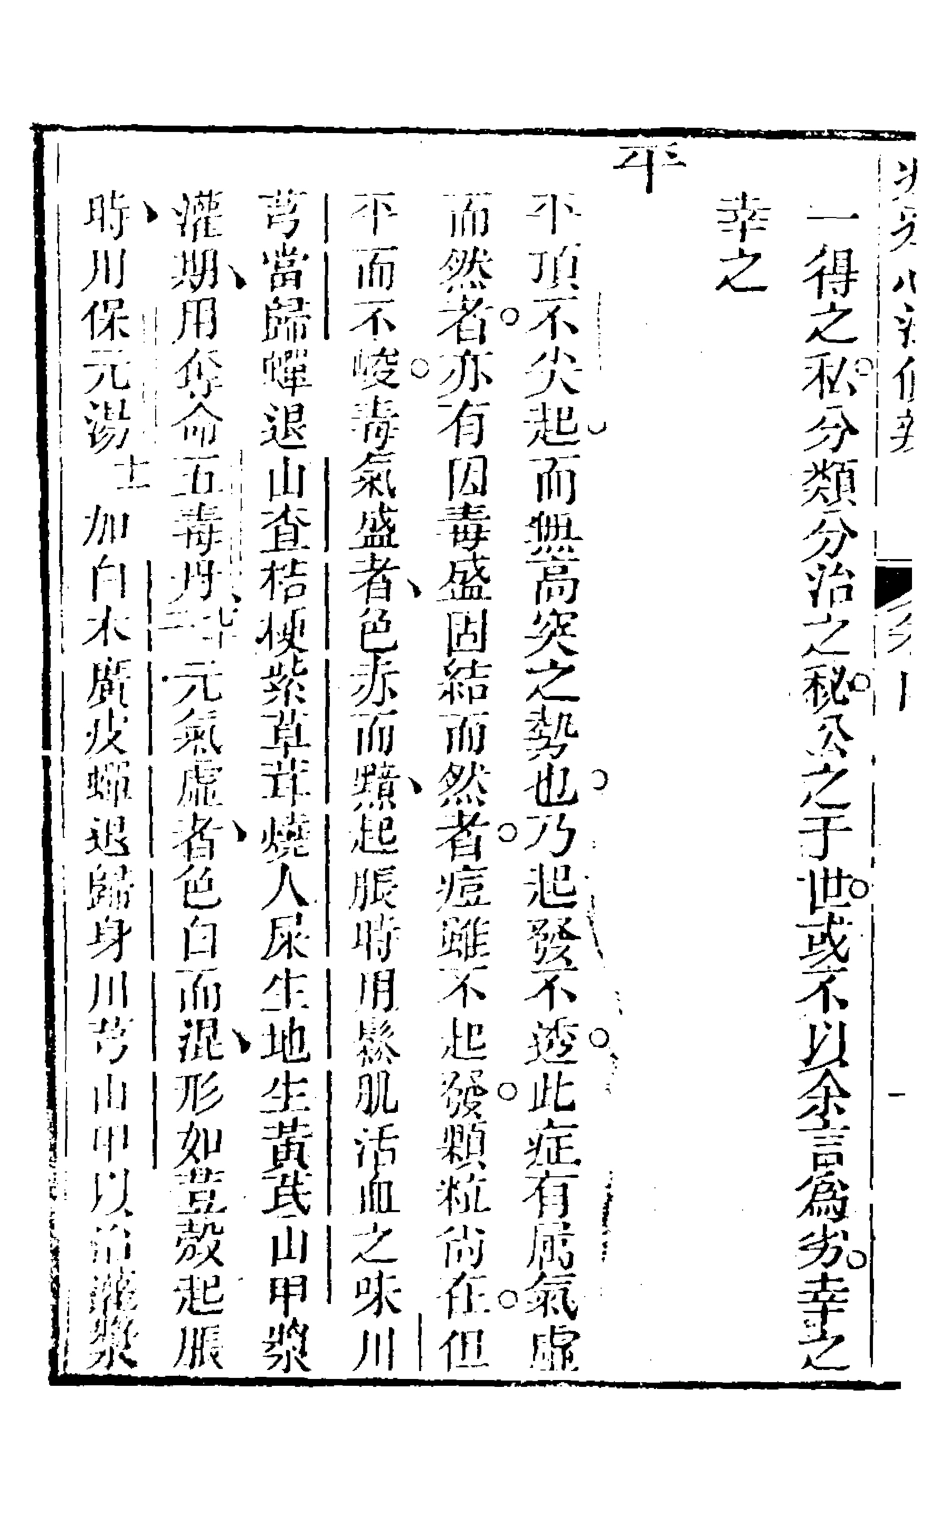 一得之私分類分治之秘公之于世或不以余言爲劣幸之
幸之
平
平頂不尖起而無高突之勢也乃起發不透此症有属氣虛
而然者亦有因毒盛固結而然者痘雖不起發顆粒尚在但
不而不峻毒氣盛者色赤而黯起脹時用鬆肌活血之味川
芎當歸蟬退山查桔梗紫草茸燒人屎生地生黃芪山甲漿
灌期用奪命五毒丹二十七元氣虛者色白而混形如荳殼起脹
時川保元湯十一加白朮廣皮蟬退歸身川芎山甲以治灌漿